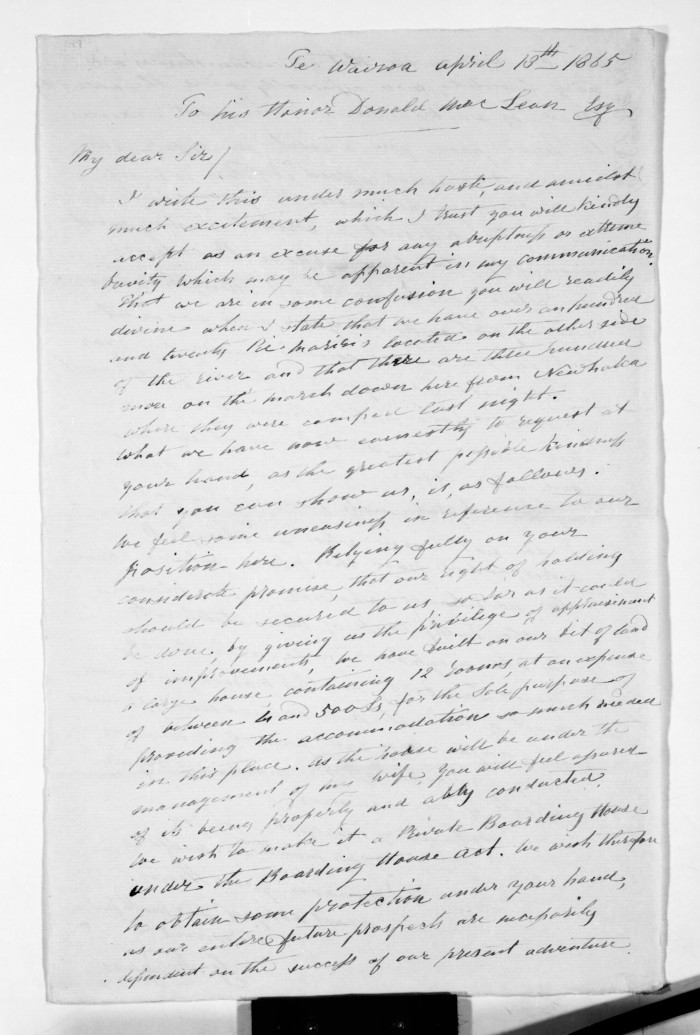 Te Wairoa April 13th 1865
To his Honor Donald Mac Lean Esq
My dear Sir/
I write this under much haste and amidst
much excitement, which I trust you will kindly
accept as an excuse for any abruptness or extreme
brevity which may be apparent in my communication.
That we are in some confusion you will readily
divine when I state that we have over an hundred
and twenty Pie Mariris located on the other side
of the river and that there are three hundred
more on the march down here from
where they were camped last night.
What we have now earnestly to request at
your hand, as the greatest possible kindness
that you can show us, is, as follows.
We feel some uneasiness in reference to our
position here. Relying fully on your
considerate promise, that our right of holding
should be secured to us so far as it could
be done by giving us the privilege of appraisement
of improvements, we have built on our bit of land
a large house, containing 12 rooms, at an expense
of between 4 and 500 £s, for the sole purpose of
providing the accommodation so much needed
in this place. As the house will be under the
management of my wife, you will feel assured
of its being properly and ably conducted.
We wish to make it a Private Boarding House
under the Boarding House Act. We wish therefore
to obtain some protection under your hand,
as our entire future prospects are necessarily
dependent on the success of our present adventure.